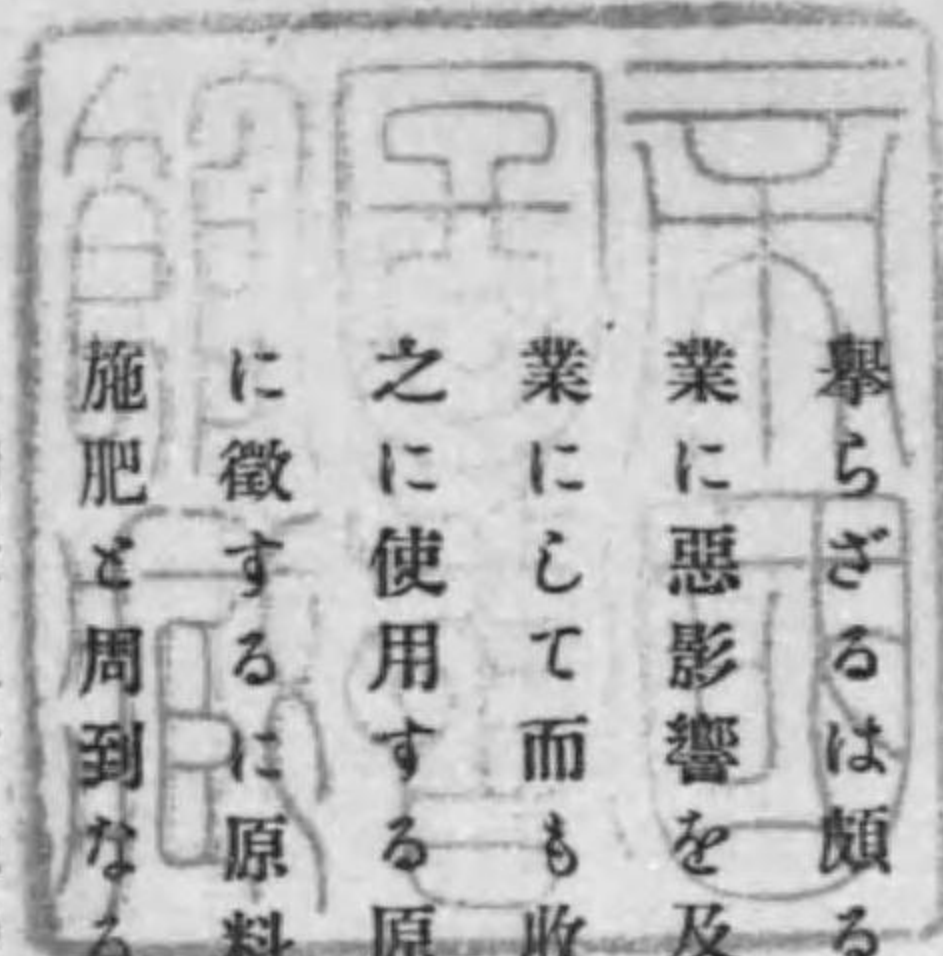 擧らざるは頗る
業に惡影響を及
業にして而も收
之に使用する原
に徵するに原料
施肥と周到なる